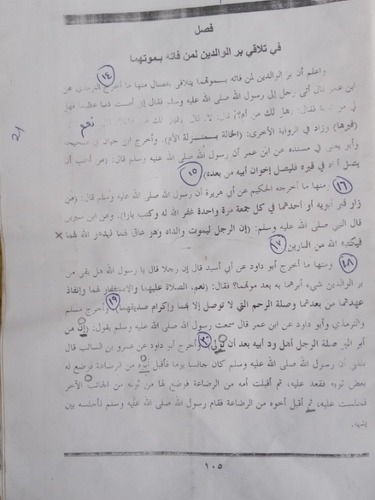 فصل
في تلافي بر الوالدين لمن فاته بموتهما
واعلم أن بر الوالدين لمن فاته بموتهما يتلافى بخصال منها ما أخرج الترمذي عن
ابن عمر قال أتى رجل إلى رسول الله صلى الله عليه وسلم فقال إني أصبت ذنبا عظيما فهل
لي من فقال: (هل لك من أم؟) قال: لا، قال: (وهل لك من قال: نعم
(فبرها) وزاد في الرواية الأخرى: (الخالة بمنزلة الأم). وأخرج ابن حبان في صحيحه
وأبو يعلى في مسنده عن ابن عمر أن رسول الله صلى الله عليه وسلم قال: (من أحب أن
يصل أباه في قبره فليصل إخوان أبيه من بعده)،
ومنها ما أخرجه الحكيم عن أبي هريرة أن رسول الله صلى الله عليه وسلم قال: (من
زار قبر أبويه أو أحدهما في كل جمعة مرة واحدة غفر الله له وكتب بارا). وعن ابن سيرين
قال النبي صلى الله عليه وسلم: (إن الرجل ليموت والداه وهو عاق لهما فيدعو الله لهما
فيكتبه الله من البارين)
ومنها ما أخرج أبو داود عن أبي أسيد قال إن رجلا قال يا رسول الله هل بقي من
بر الوالدين شيء أبرهما به بعد موتهما؟ فقال: (نعم، الصلاة عليهما والاستغفار لهما وإنفاذ
عهدهما من بعدهما وصلة الرحم التي لا توصل إلا بهما وإكرام صديقهما) وأخرج مسلم
والترمذي وأبو داود عن ابن عمر قال سمعت رسول الله صلى الله عليه وسلم يقول: (إن من
أبر البر صلة الرجل أهل ود أبيه بعد أن يولي) وأخرج أبو داود عن عمرو بن السائب قال
بلغني أن رسول الله صلى الله عليه وسلم كان جالسا يوما فأقبل أبوه من الرضاعة فوضع له
بعض ثوبه فقعد عليه، ثم أقبلت أمه من الرضاعة فوضع لها من ثوبه من الجانب الآخر
فجلست عليه، ثم أقبل أخوه من الرضاعة فقام رسول الله صلى الله عليه وسلم فأجلسه بين
يديه.
١٠٥
نعم
21
١٤
١٥
١٦
١٧
١٨
١٩
٢٠